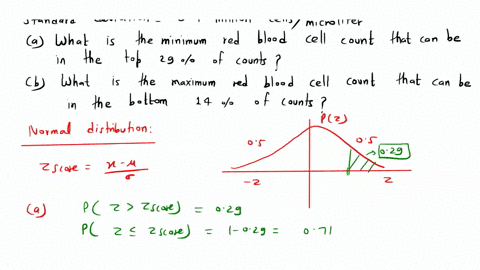 standard deviation = 0.4 million cells/microliter
(a) What is the minimum red blood cell count that can be
in the top 29% of counts?
(b) What is the maximum red blood cell count that can be
in the bottom 14% of counts?
Normal distribution:
P(z)
0.5 0.5 0.29
Zscore = x-μ / σ
-z z
(a) P( z > zscore) = 0.29
P( z ≤ zscore) = 1-0.29 = 0.71